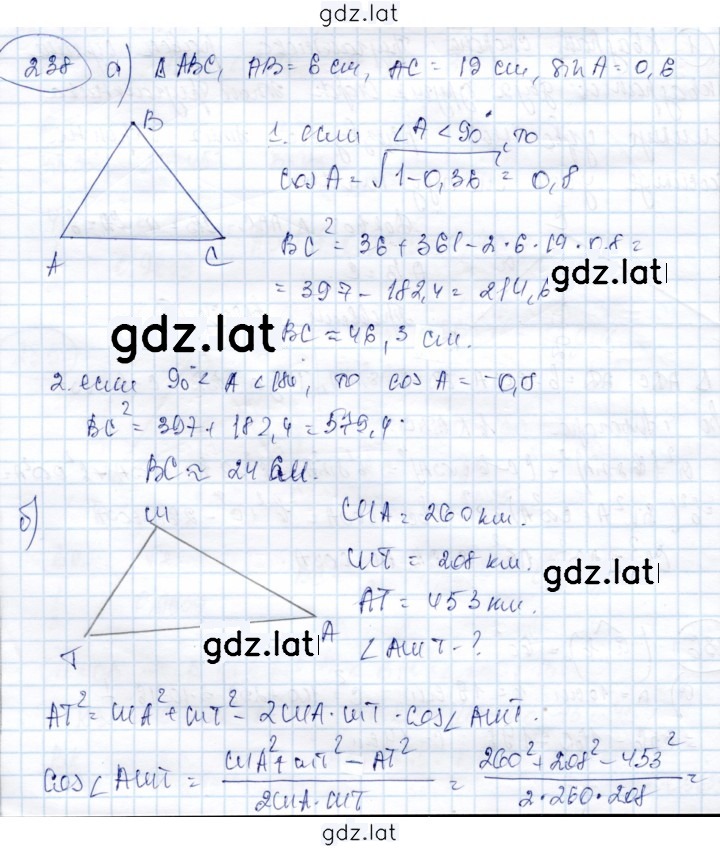 gdz.lat
238 а) Δ ABC, AB = 6 см, AC = 19 см, sin A = 0,6
B
A
C
1. если ∠A < 90°, то
cos A = √1-0,36 = 0,8
BC² = 36 + 361 - 2·6·19·0.8 =
= 397 - 182,4 = 214,6
gdz.lat
gdz.lat
BC ≈ 46,3 см.
2. если 90° < A < 180°, то cos A = -0,8
BC² = 397 + 182,4 = 579,4.
BC ≈ 24 см.
б)
Ш
Т
А
ША = 260 км.
ШТ = 208 км.
gdz.lat
АТ = 453 км.
gdz.lat
∠АШТ - ?
АТ² = ША² + ШТ² - 2ША·ШТ·cos∠АШТ.
cos∠АШТ = (ША² + ШТ² - АТ²) / (2ША·ШТ) = (260² + 208² - 453²) / (2·260·208) =
gdz.lat